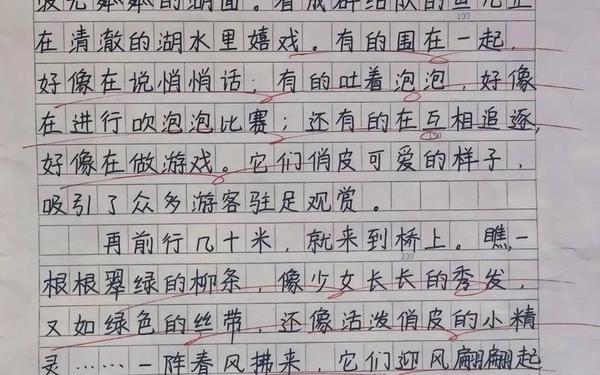 在清澈的湖水里嬉戏。有的围在一起,
好像在说悄悄话;有的吐着泡泡,好像
在进行吹泡泡比赛;还有的在互相追逐,
好像在做游戏。它们俏皮可爱的样子,
吸引了众多游客驻足观赏。
再前行几十米,就来到桥上。瞧,一
根根翠绿的柳条,像少女长长的秀发,
又如绿色的丝带,还像活泼俏皮的小精
灵……一阵春风拂来,它们迎风翩翩起